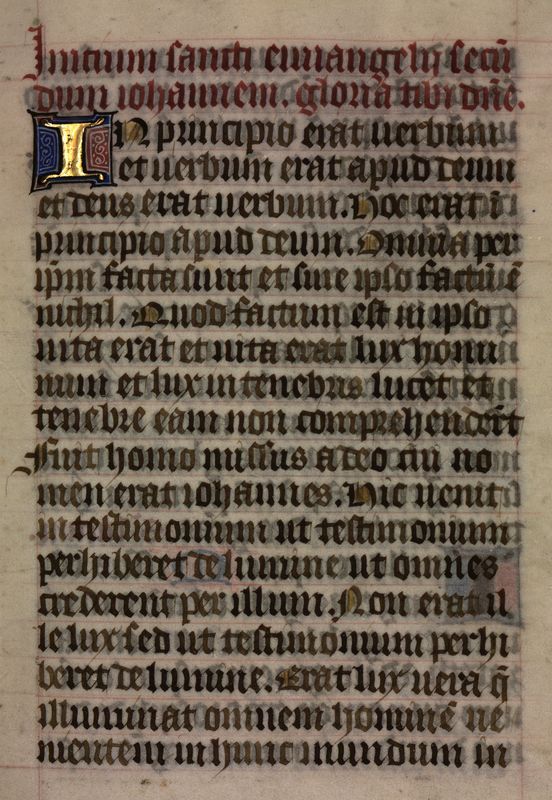 Inicium sancti euuangelij secū
dum iohannem. gloria tibi dn̄e.
IN principio erat uerbum
et uerbum erat apud deum
et deus erat uerbum. Hoc erat ī
principio apud deum. Omnia per
ip̄m facta sunt et sine ipso factū ē
nichil. Quod factum est in ipso
uita erat et uita erat lux homi
num et lux in tenebris lucet et
tenebre eam non comprehender̄t
Fuit homo missus a deo cui no
men erat iohannes. Hic uenit
in testimonium ut testimonium
perhiberet de lumine ut omnes
crederent per illum. Non erat il
le lux sed ut testimonium perhi
beret de lumine. Erat lux uera q̄
illuminat omnem hominē ue
nientem in hunc mundum in